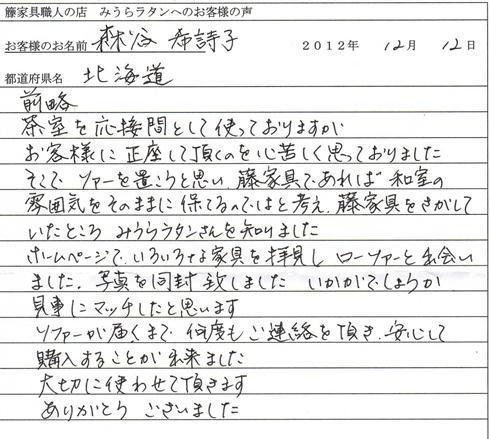 藤家具職人の店 みうらラタンへのお客様の声
お客様のお名前 森谷 希詩子 2012年 12月 12日
都道府県名 北海道
前略
茶室を応接間として使っておりますが
お客様に正座して頂くのを心苦しく思っておりました
そこで ソファーを置こうと思い 藤家具であれば 和室の
雰囲気をそのままに保てるのではと考え、藤家具をさがして
いたところ みうらラタンさんを知りました
ホームページで、いろいろな家具を拝見し ローソファーと出会い
ました。写真を同封致しました いかがでしょうか
見事にマッチしたと思います
ソファーが届くまで 何度もご連絡を頂き、安心して
購入することが出来ました
大切に使わせて頂きます
ありがとう ございました